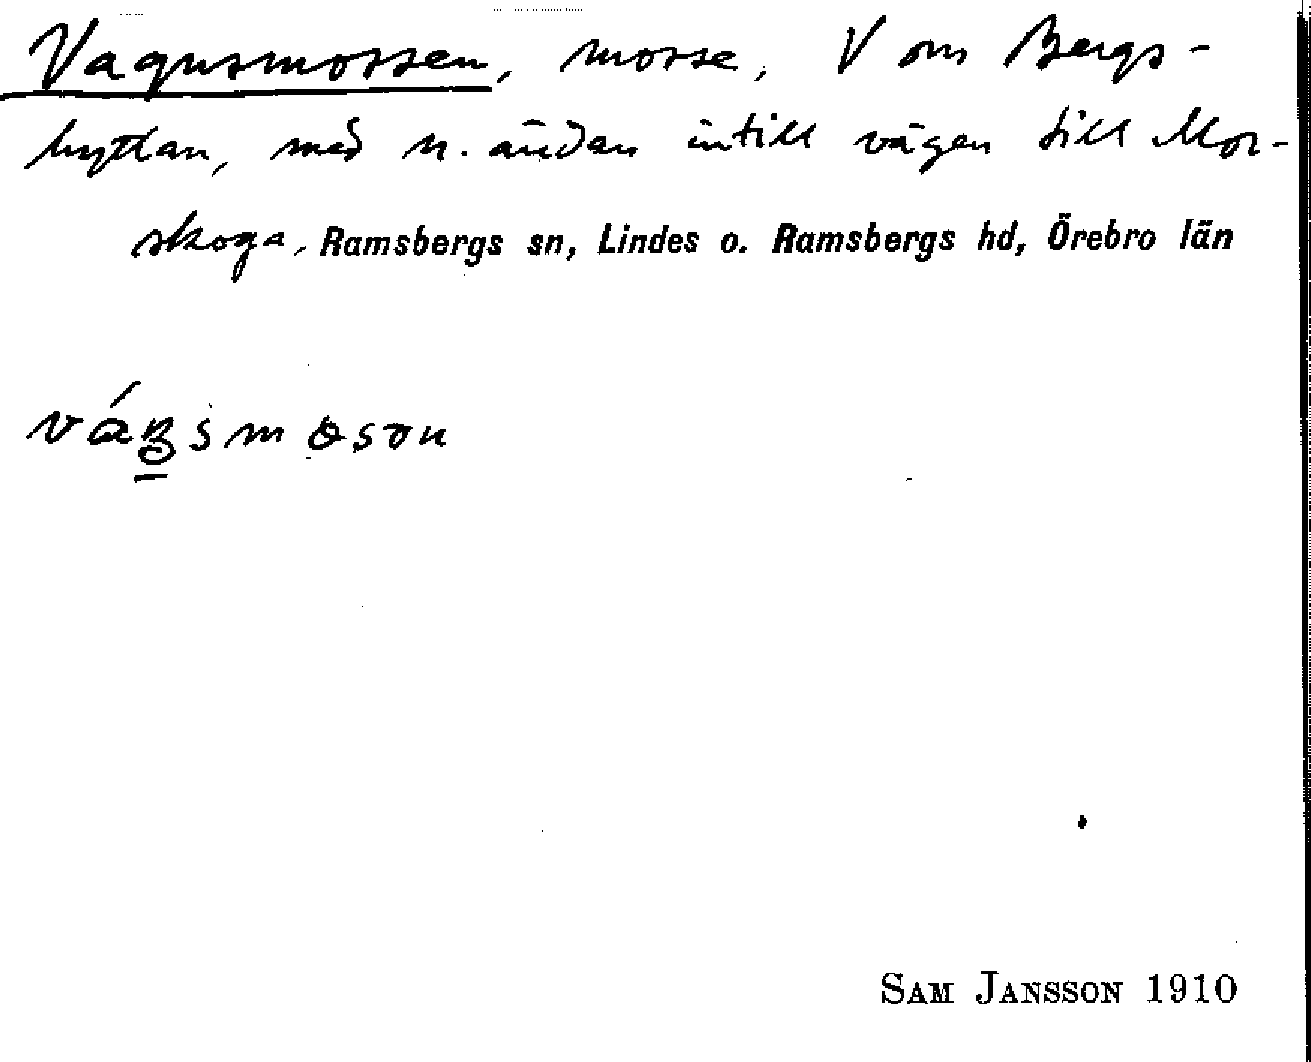 Vagnsmossen, mosse, V om Bergs-
hyttan, med n. ändan intill vägen till Mor-
skoga, Ramsbergs sn, Lindes o. Ramsbergs hd, Örebro län
SAM JANSSON 1910